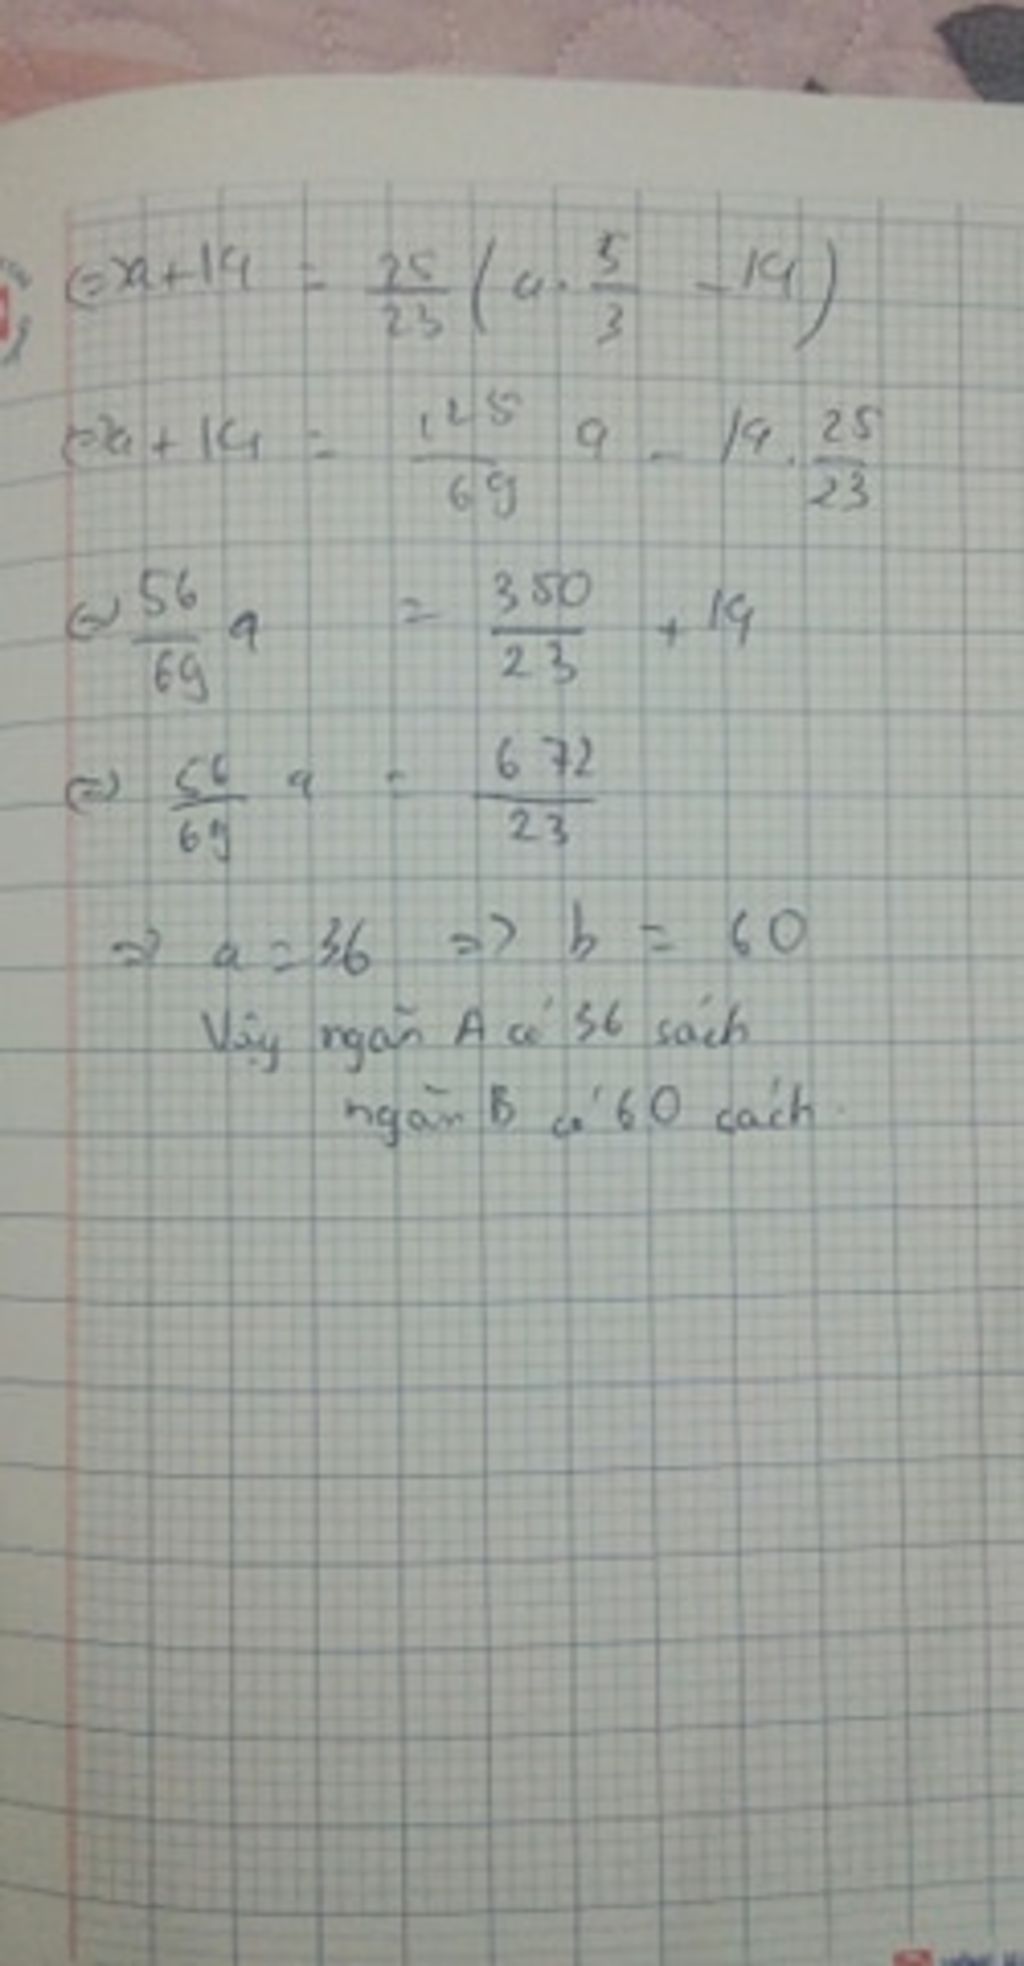 ⇔ a + 14 = 25/23 ( a . 5/3 - 14 )
⇔ a + 14 = 125/69 a - 14 . 25/23
⇔ 56/69 a = 350/23 + 14
⇔ 56/69 a = 672/23
⇒ a = 36 ⇒ b = 60
Vậy ngăn A có 36 sách
ngăn B có 60 sách.